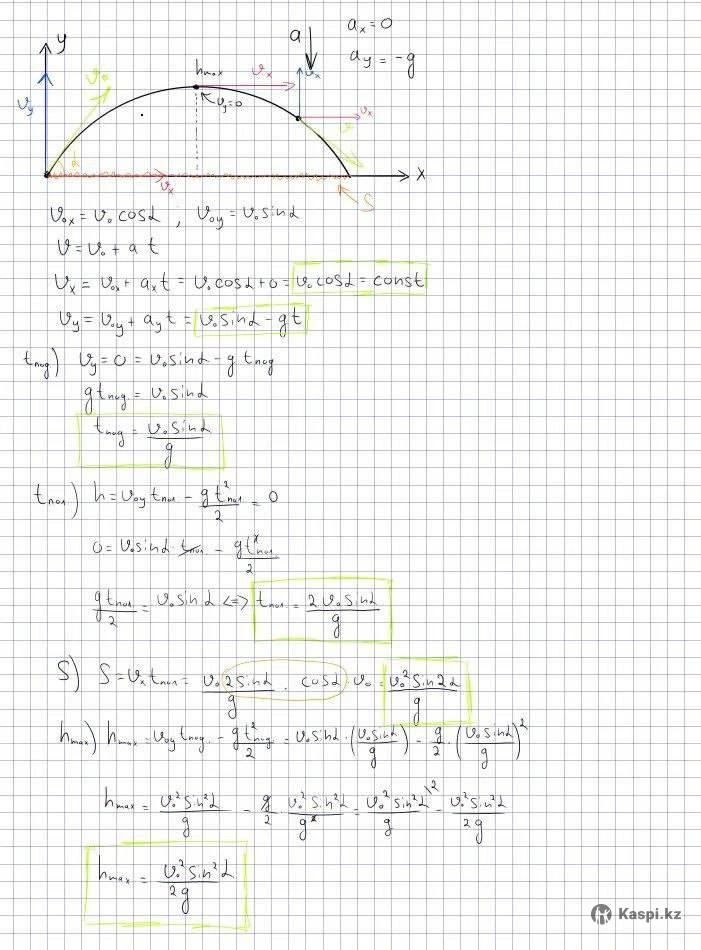 y
a
aₓ = 0
a_y = -g
h_max
vₓ
vₓ
v₀
v_y = 0
v_y
vₓ
v
α
x
vₓ
S
v₀ₓ = v₀ cosα , v₀y = v₀ sinα
v = v₀ + a t
vₓ = v₀ₓ + aₓt = v₀ cosα + 0 = v₀ cosα = const
v_y = v₀y + a_y t = v₀ sinα - gt
t_под) v_y = 0 = v₀ sinα - g t_под
g t_под = v₀ sinα
t_под = v₀ sinα / g
t_пол) h = v₀y t_пол - g t²_пол / 2 = 0
0 = v₀ sinα · t_пол - g t²_пол / 2
g t_пол / 2 = v₀ sinα <=> t_пол = 2 v₀ sinα / g
S) S = vₓ t_пол = v₀ 2 sinα / g · cosα · v₀ = v₀² sin2α / g
h_max) h_max = v₀y t_под - g t²_под / 2 = v₀ sinα · (v₀ sinα / g) - g/2 · (v₀ sinα / g)²
h_max = v₀² sin²α / g - g/2 · v₀² sin²α / g² = v₀² sin²α / g \² - v₀² sin²α / 2g
h_max = v₀² sin²α / 2g
Kaspi.kz